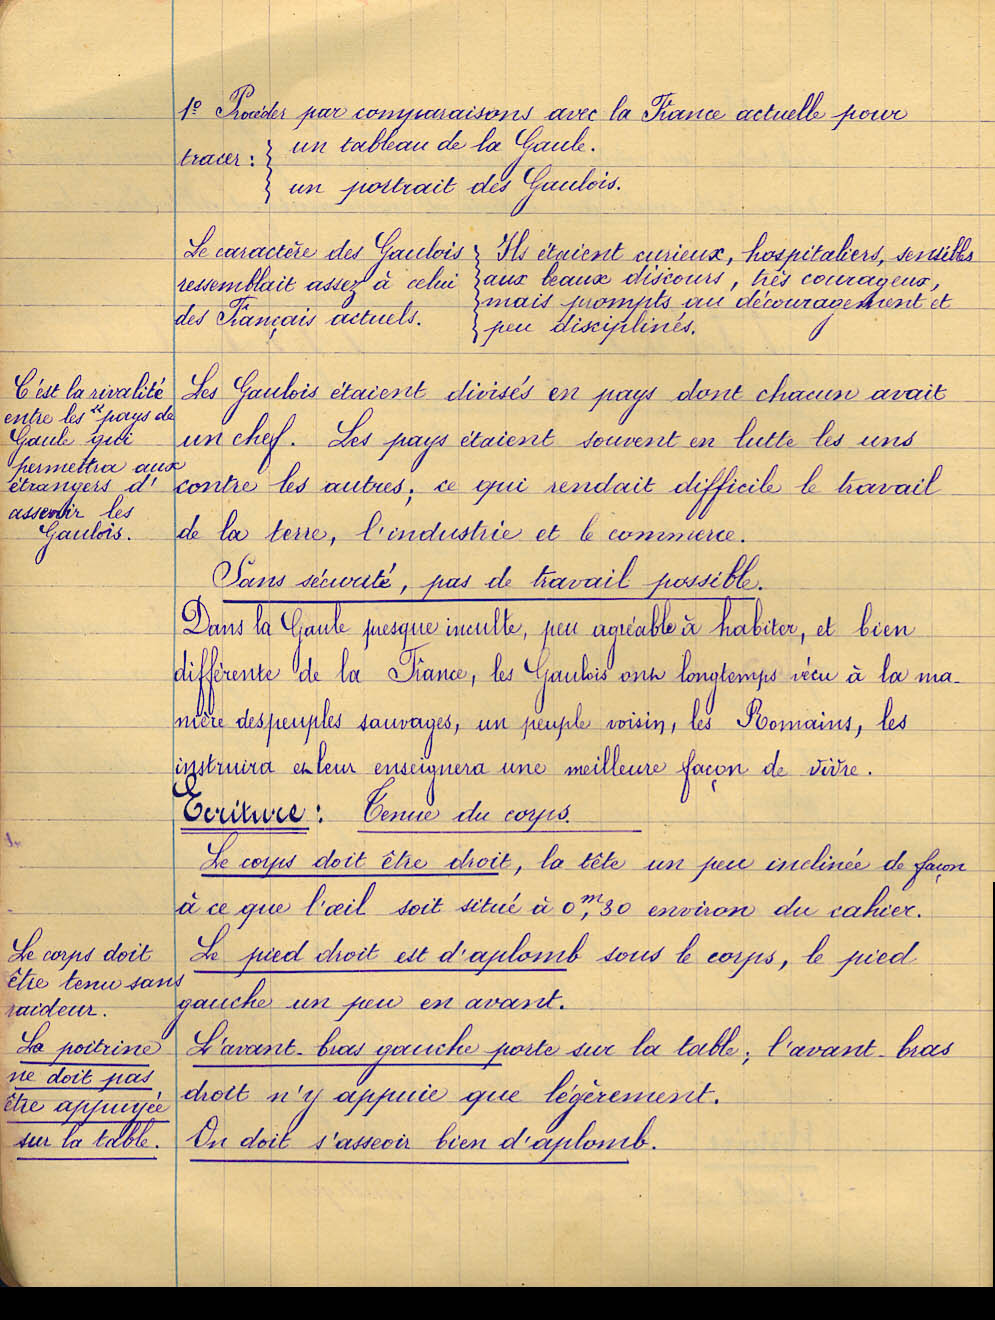 1º Procéder par comparaisons avec la France actuelle pour
tracer : { un tableau de la Gaule.
un portrait des Gaulois.
Le caractère des Gaulois
ressemblait assez à celui
des Français actuels.
{ Ils étaient curieux, hospitaliers, sensibles
aux beaux discours, très courageux,
mais prompts au découragement et
peu disciplinés.
C'est la rivalité
entre les "pays de
Gaule qui
permettra aux
étrangers d'
asservir les
Gaulois.
Les Gaulois étaient divisés en pays dont chacun avait
un chef. Les pays étaient souvent en lutte les uns
contre les autres; ce qui rendait difficile le travail
de la terre, l'industrie et le commerce.
Sans sécurité, pas de travail possible.
Dans la Gaule presque inculte, peu agréable à habiter, et bien
différente de la France, les Gaulois ont longtemps vécu à la ma-
nière des peuples sauvages, un peuple voisin, les Romains, les
instruira et leur enseignera une meilleure façon de vivre.
Ecriture : Tenue du corps.
Le corps doit être droit, la tête un peu inclinée de façon
à ce que l'œil soit situé à 0m,30 environ du cahier.
Le corps doit
être tenu sans
raideur.
Le pied droit est d'aplomb sous le corps, le pied
gauche un peu en avant.
La poitrine
ne doit pas
être appuyée
sur la table.
L'avant-bras gauche porte sur la table; l'avant-bras
droit n'y appuie que légèrement.
On doit s'asseoir bien d'aplomb.